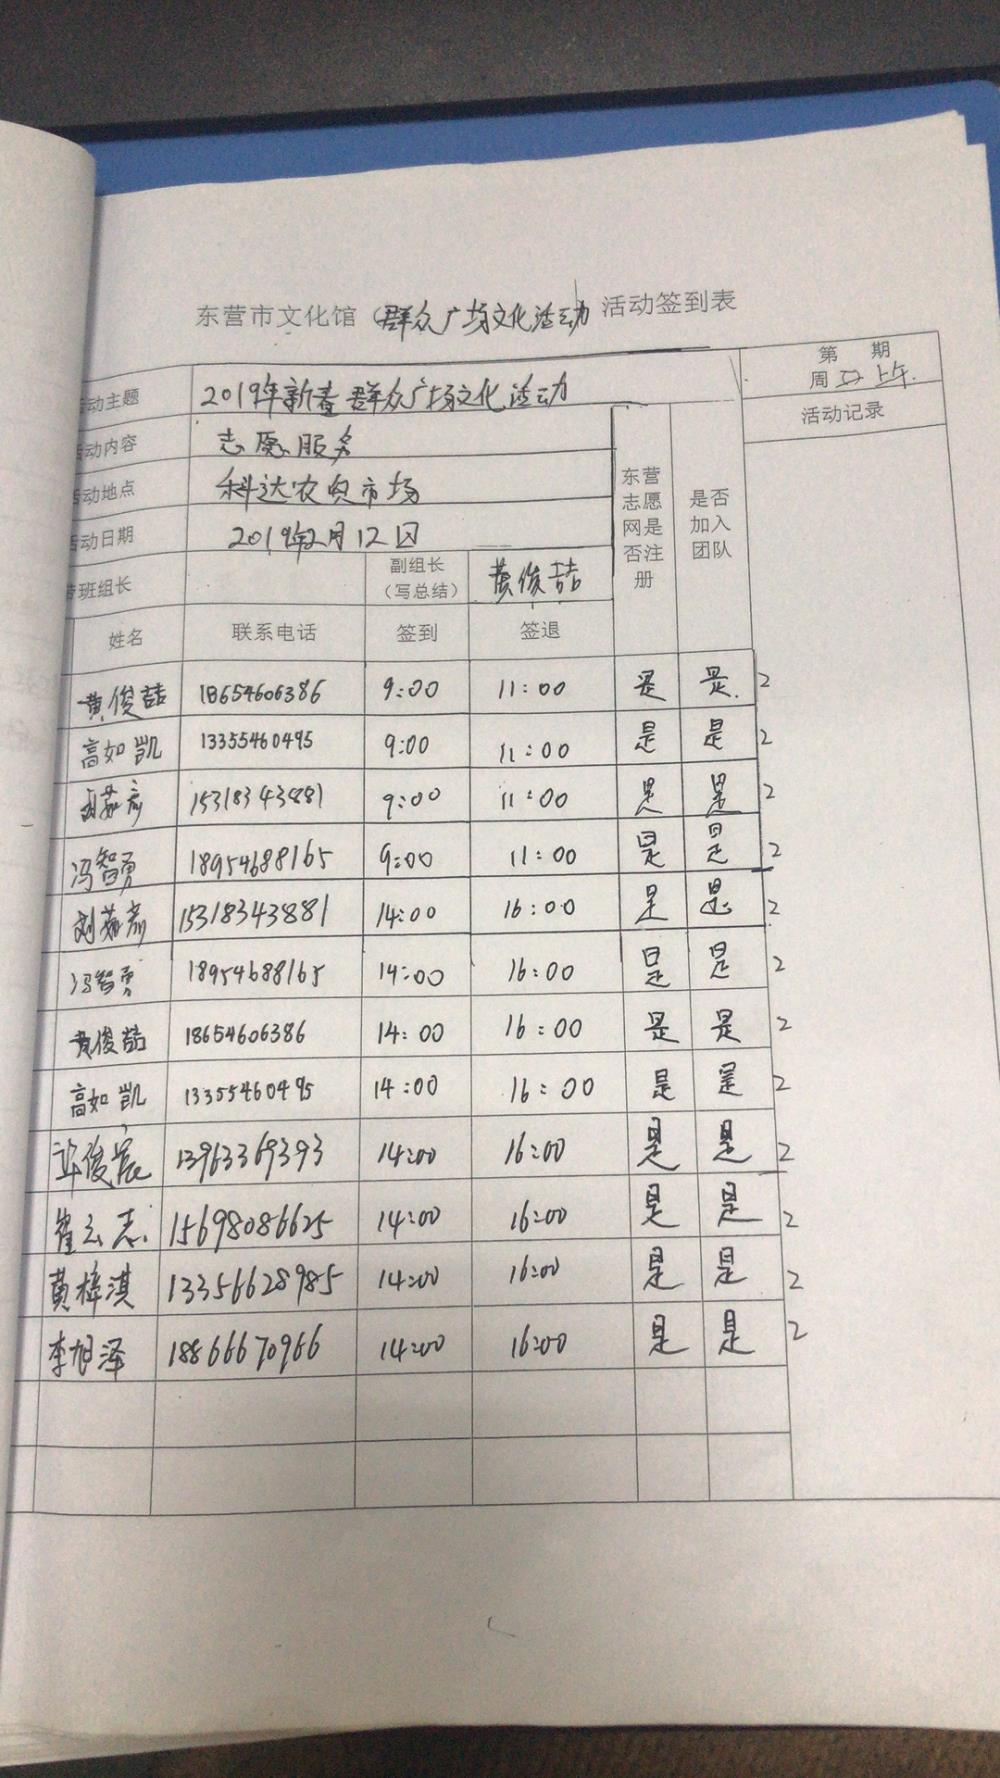 东营市文化馆（群众广场文化活动 活动签到表
动主题 2019年新春群众广场文化活动 第 期
周 上午
动内容 志愿服务 活动记录
动地点 科达农贸市场 东营志愿网是否注册 是否加入团队
动日期 2019年2月12日
班组长 副组长（写总结） 黄俊喆
姓名 联系电话 签到 签退
黄俊喆 18654606386 9:00 11:00 是 是 2
高如凯 13355460495 9:00 11:00 是 是 2
15318343881 9:00 11:00 是 是 2
冯智勇 18954688165 9:00 11:00 是 是 2
刘茹彦 15318343881 14:00 16:00 是 是 2
冯智勇 18954688165 14:00 16:00 是 是 2
黄俊喆 18654606386 14:00 16:00 是 是 2
高如凯 13355460495 14:00 16:00 是 是 2
13963369393 14:00 16:00 是 是 2
崔云志 15698086625 14:00 16:00 是 是 2
黄梓淇 13356628985 14:00 16:00 是 是 2
李旭泽 18866670966 14:00 16:00 是 是 2